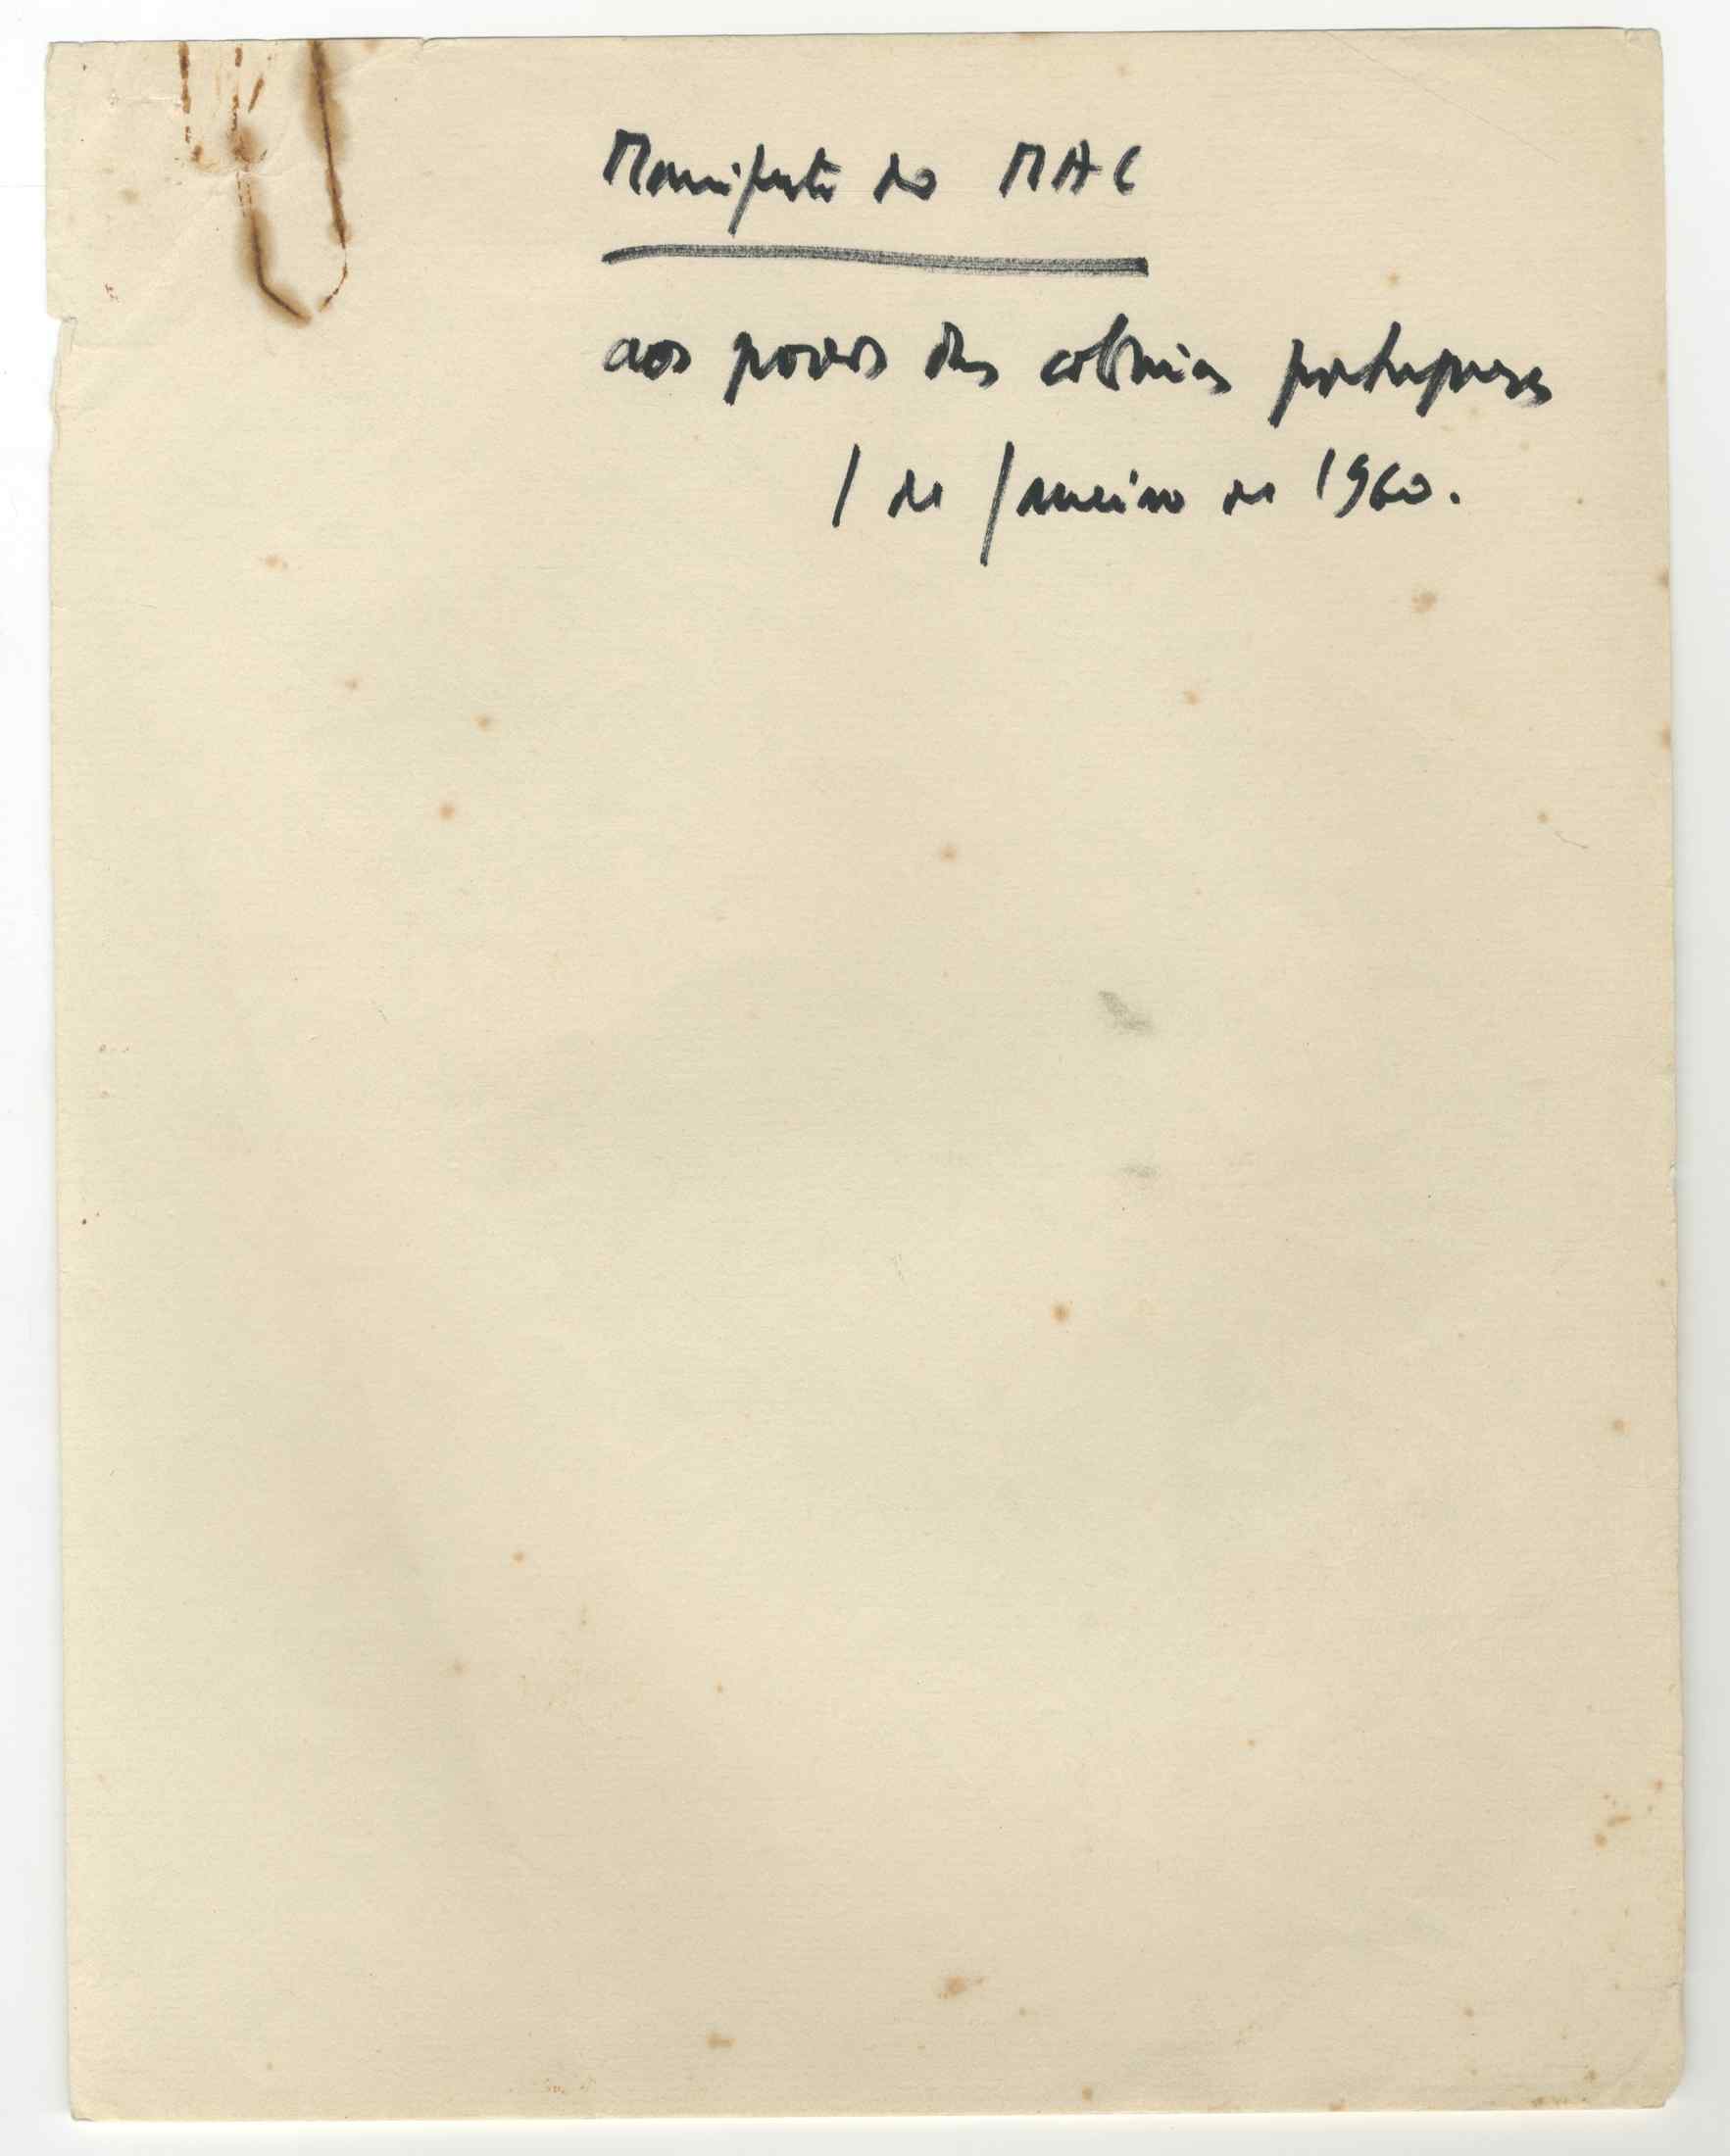 Manifesto do MAC
aos povos das colónias portuguesas
1 de Janeiro de 1960.